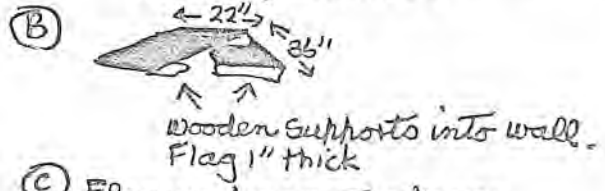 (B) ← 22" →
Wooden Supports into wall.
Flag 1" thick
(C)